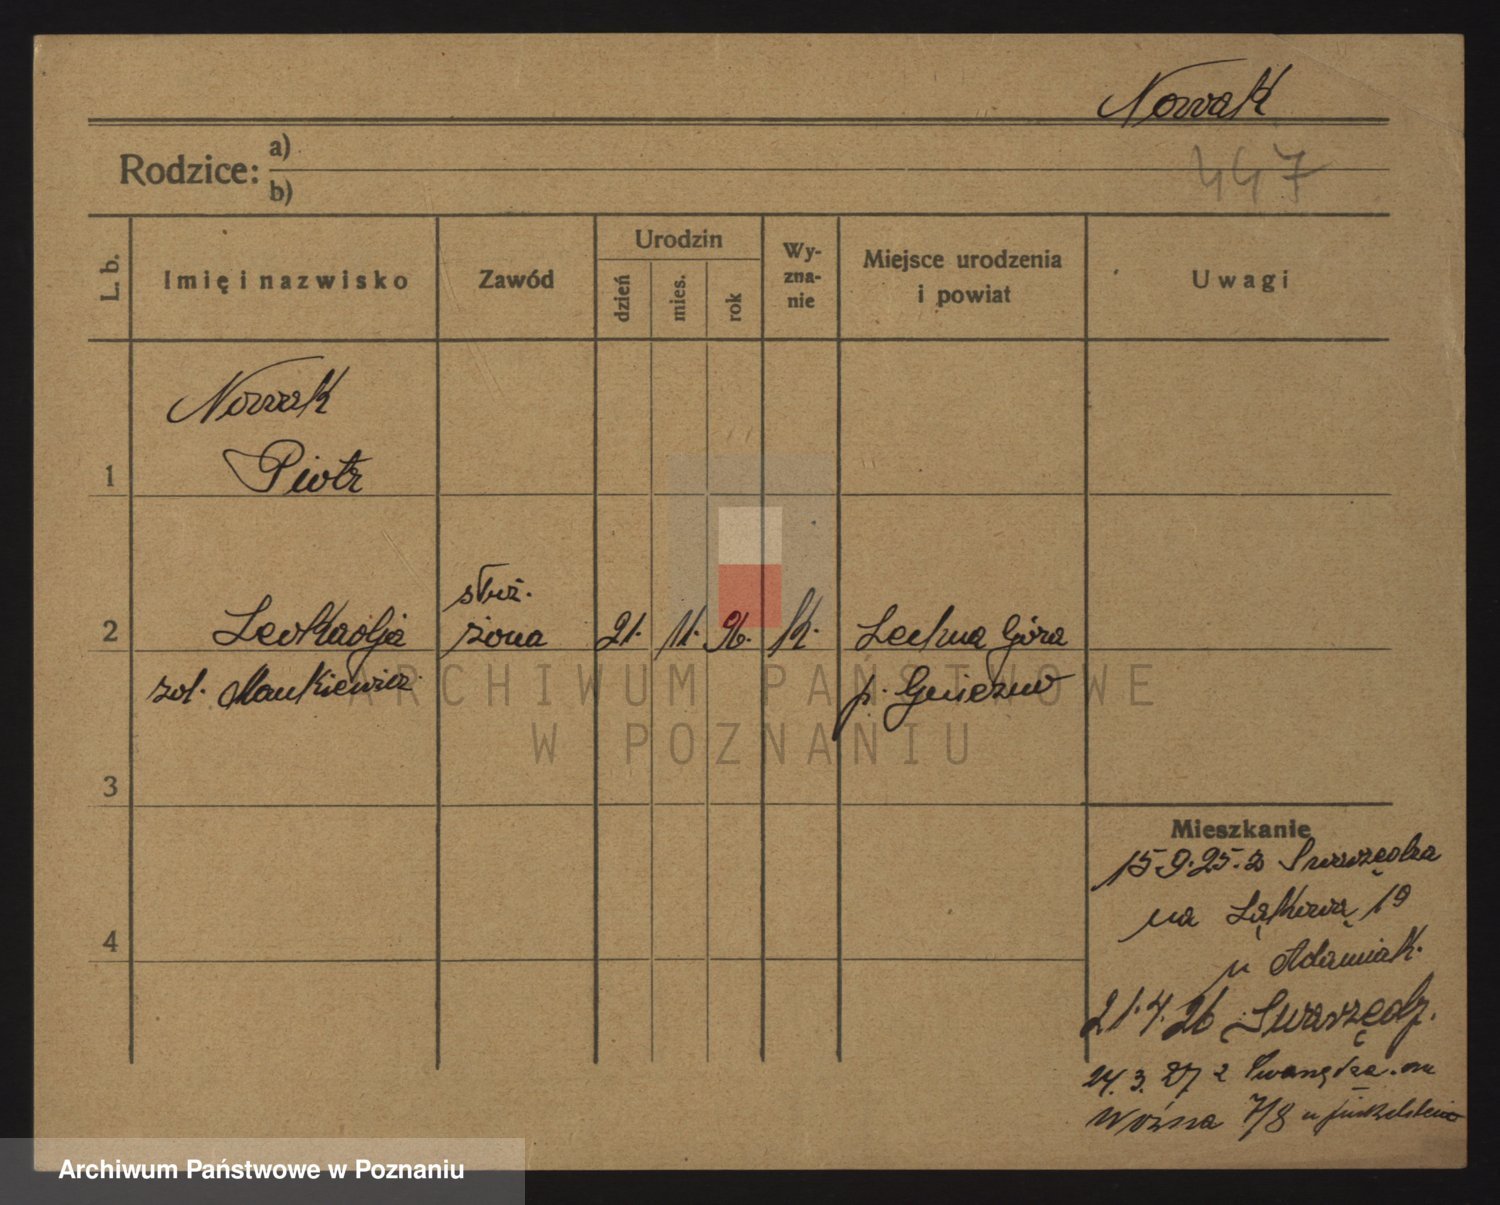 Nowak
447
Rodzice: a)
b)
L. b.
Imię i nazwisko
Zawód
Urodzin
dzień
mies.
rok
Wy-
zna-
nie
Miejsce urodzenia
i powiat
Uwagi
Nowak
1 Piotr
służ.
2 Leokadja żona 21. 11. 96. k. Lechna Góra
zol. Mankiewicz p. Gniezno
3
Mieszkanie
15.9.25. z Swarzędza
na Łąkową 19
4
u Adamiak.
21.4.26 Swarzędz.
24.3.27 z Swarzędza. na
Woźna 7/8 u
ARCHIWUM PAŃSTWOWE
W POZNANIU
Archiwum Państwowe w Poznaniu